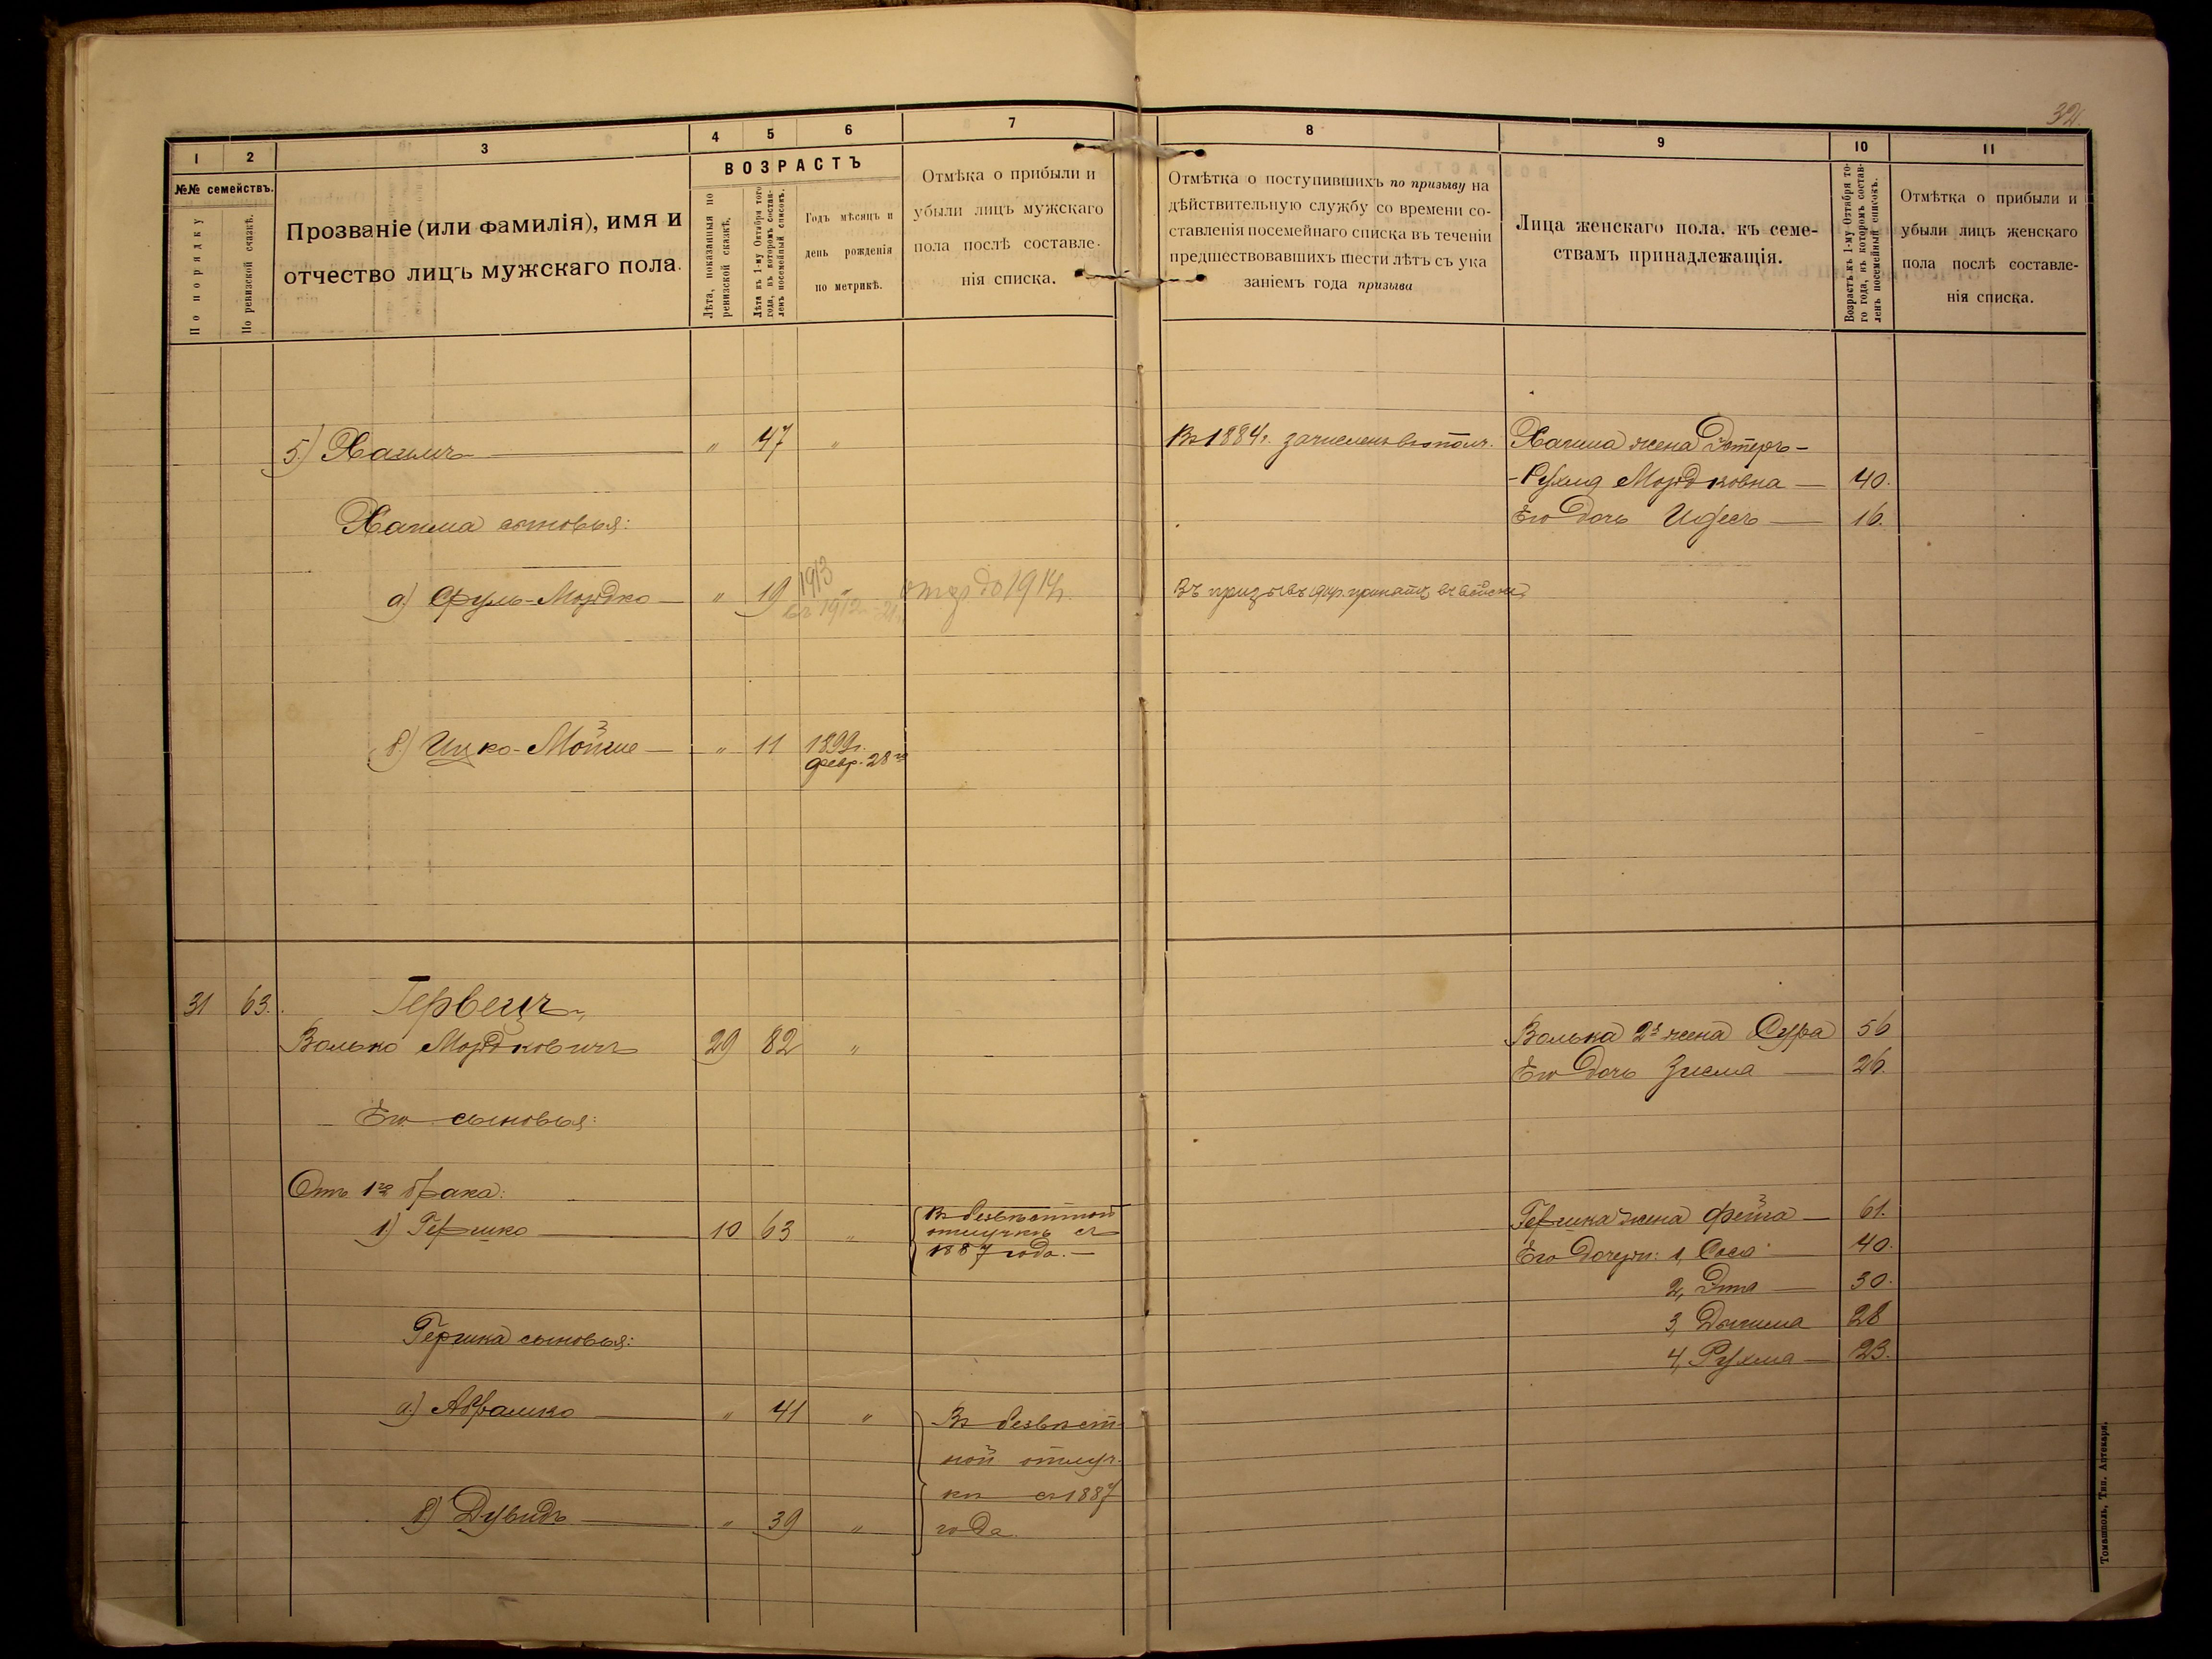 32.
1
2
3
4
5
6
7
8
9
10
11
№№ семействъ.
По порядку
По ревизской сказкѣ.
Прозваніе (или фамилія), имя и
отчество лицъ мужскаго пола.
ВОЗРАСТЪ
Лѣта, показанныя по
ревизской сказкѣ.
Лѣта къ 1-му Октября того
года, въ которомъ состав-
ленъ посемейный списокъ.
Годъ мѣсяцъ и
день рожденія
по метрикѣ.
Отмѣка о прибыли и
убыли лицъ мужскаго
пола послѣ составле-
нія списка.
Отмѣтка о поступившихъ по призыву на
дѣйствительную службу со времени со-
ставленія посемейнаго списка въ теченіи
предшествовавшихъ шести лѣтъ съ ука
заніемъ года призыва
Лица женскаго пола, къ семе-
ствамъ принадлежащія.
Возрастъ къ 1-му Октября то-
го года, въ которомъ состав-
ленъ посемейный списокъ.
Отмѣтка о прибыли и
убыли лицъ женскаго
пола послѣ составле-
нія списка.
5.) Хаимъ — " 47 "
Въ 1884 г. зачисленъ въ ополч.
Хаима жена Эстеръ-
-Рухля Мордковна — 40.
Хаима сыновья:
Его дочь Идесъ — 16.
а) Сруль-Мордко — " 19 "
1913
въ 1912 - 21
отср до 1914 г.
Въ призывъ принятъ въ войска
в) Ицко-Мойше — " 11 1899 г.
февр. 28 го
31 63. Гервецъ
Волько Мордковичъ 29 82 "
Волька 2я жена Сура 56
Его дочь Зисма — 26.
Его сыновья:
Отъ 1го брака:
1) Гершко — 10 63 "
Въ безвѣстной
отлучкѣ съ
1887 года. —
Гершка жена Фейга — 61.
Его дочери: 1, Сося — 40.
2, Эта — 30.
3, Дышма 28
4, Рухля — 23.
Гершка сыновья:
а.) Абрамко — " 41 "
Въ безвѣст
ной отлуч-
кѣ съ 1887
года.
в) Дувидъ — " 39 "
Томашполь, Тип. Аптекаря.